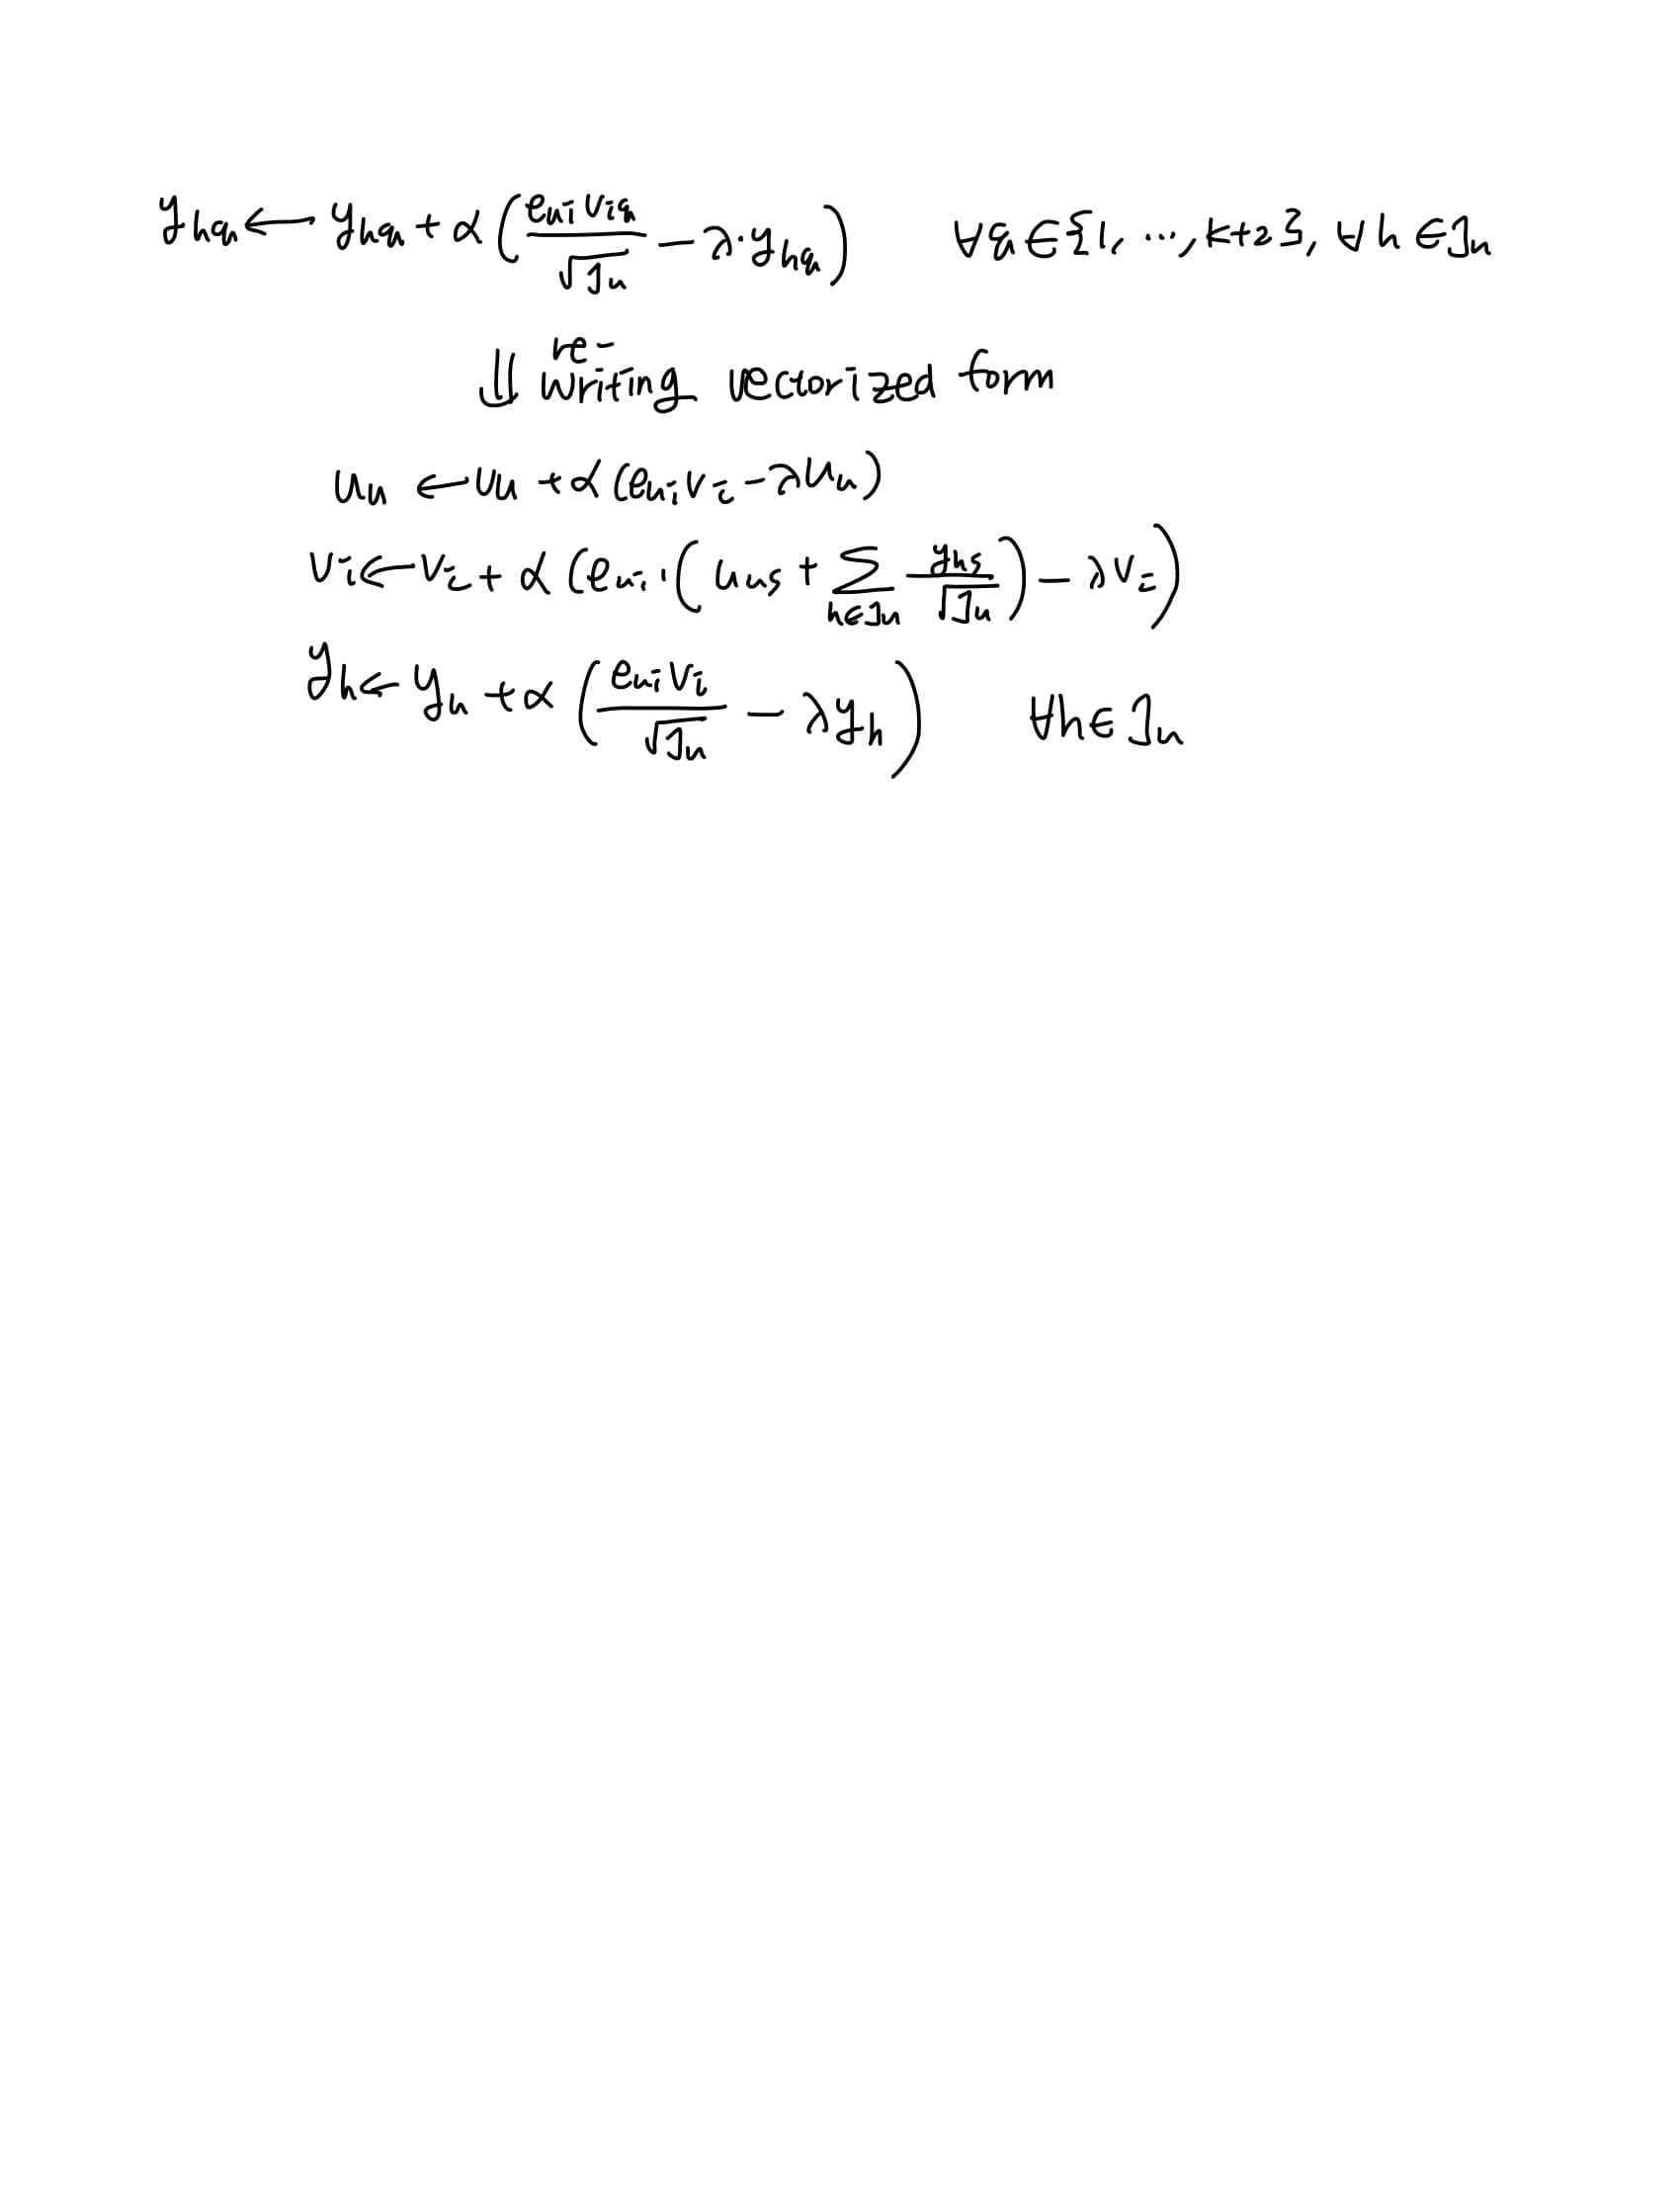 y_{hq} ← y_{hq} + α( e_{ui} v_{iq} / √I_u − λ·y_{hq} )   ∀q ∈ {1, ..., k+2}, ∀h ∈ I_u
⇓ re-writing vectorized form
u_u ← u_u + α(e_{ui} v_i − λu_u)
v_i ← v_i + α(e_{ui}·(u_{us} + ∑_{h∈I_u} y_{hs} / √I_u) − λv_i)
y_h ← y_h + α( e_{ui} v_i / √I_u − λy_h )   ∀h ∈ I_u